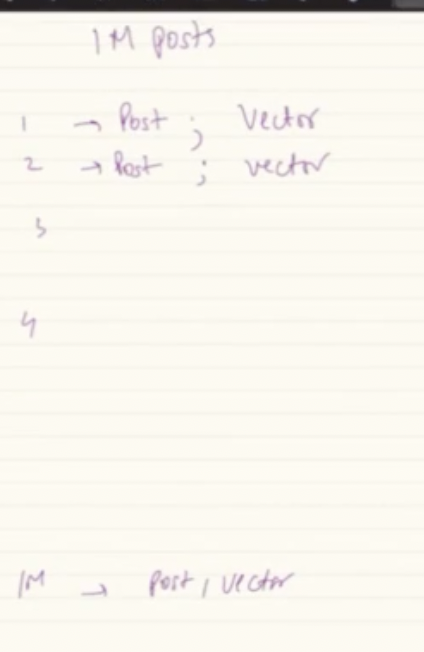 1M posts
1 → Post ; Vector
2 → Post ; vector
3
4
1M → Post, vector